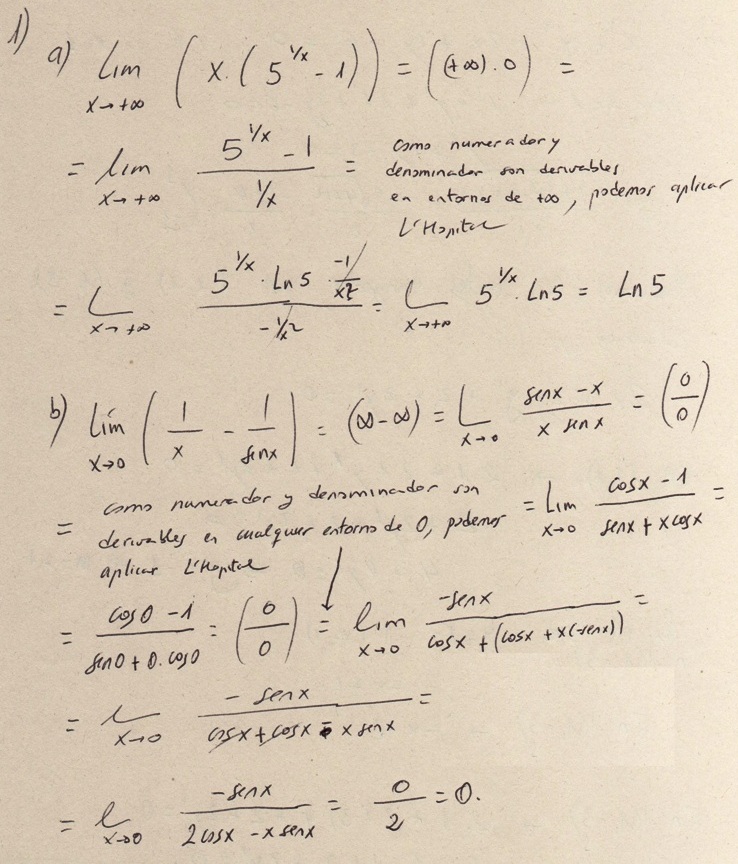 1)
a) lim x→+∞ ( x · ( 5^(1/x) - 1 ) ) = ( (+∞) · 0 ) =
= lim x→+∞ (5^(1/x) - 1) / (1/x) = como numerador y
denominador son derivables
en entornos de +∞, podemos aplicar
L'Hopital
= L x→+∞ (5^(1/x) · Ln 5 · (-1/x²)) / (-1/x²) = L x→+∞ 5^(1/x) · Ln 5 = Ln 5
b) lím x→0 ( 1/x - 1/senx ) = (∞-∞) = L x→0 (senx - x) / (x senx) = (0/0)
= como numerador y denominador son
derivables en cualquier entorno de 0, podemos
aplicar L'Hopital
= lim x→0 (cosx - 1) / (senx + x cosx) =
= (cos0 - 1) / (sen0 + 0 · cos0) = (0/0) = lim x→0 (-senx) / (cosx + (cosx + x(-senx))) =
= L x→0 (- senx) / (cosx + cosx - x senx) =
= L x→0 (-senx) / (2cosx - x senx) = 0/2 = 0.